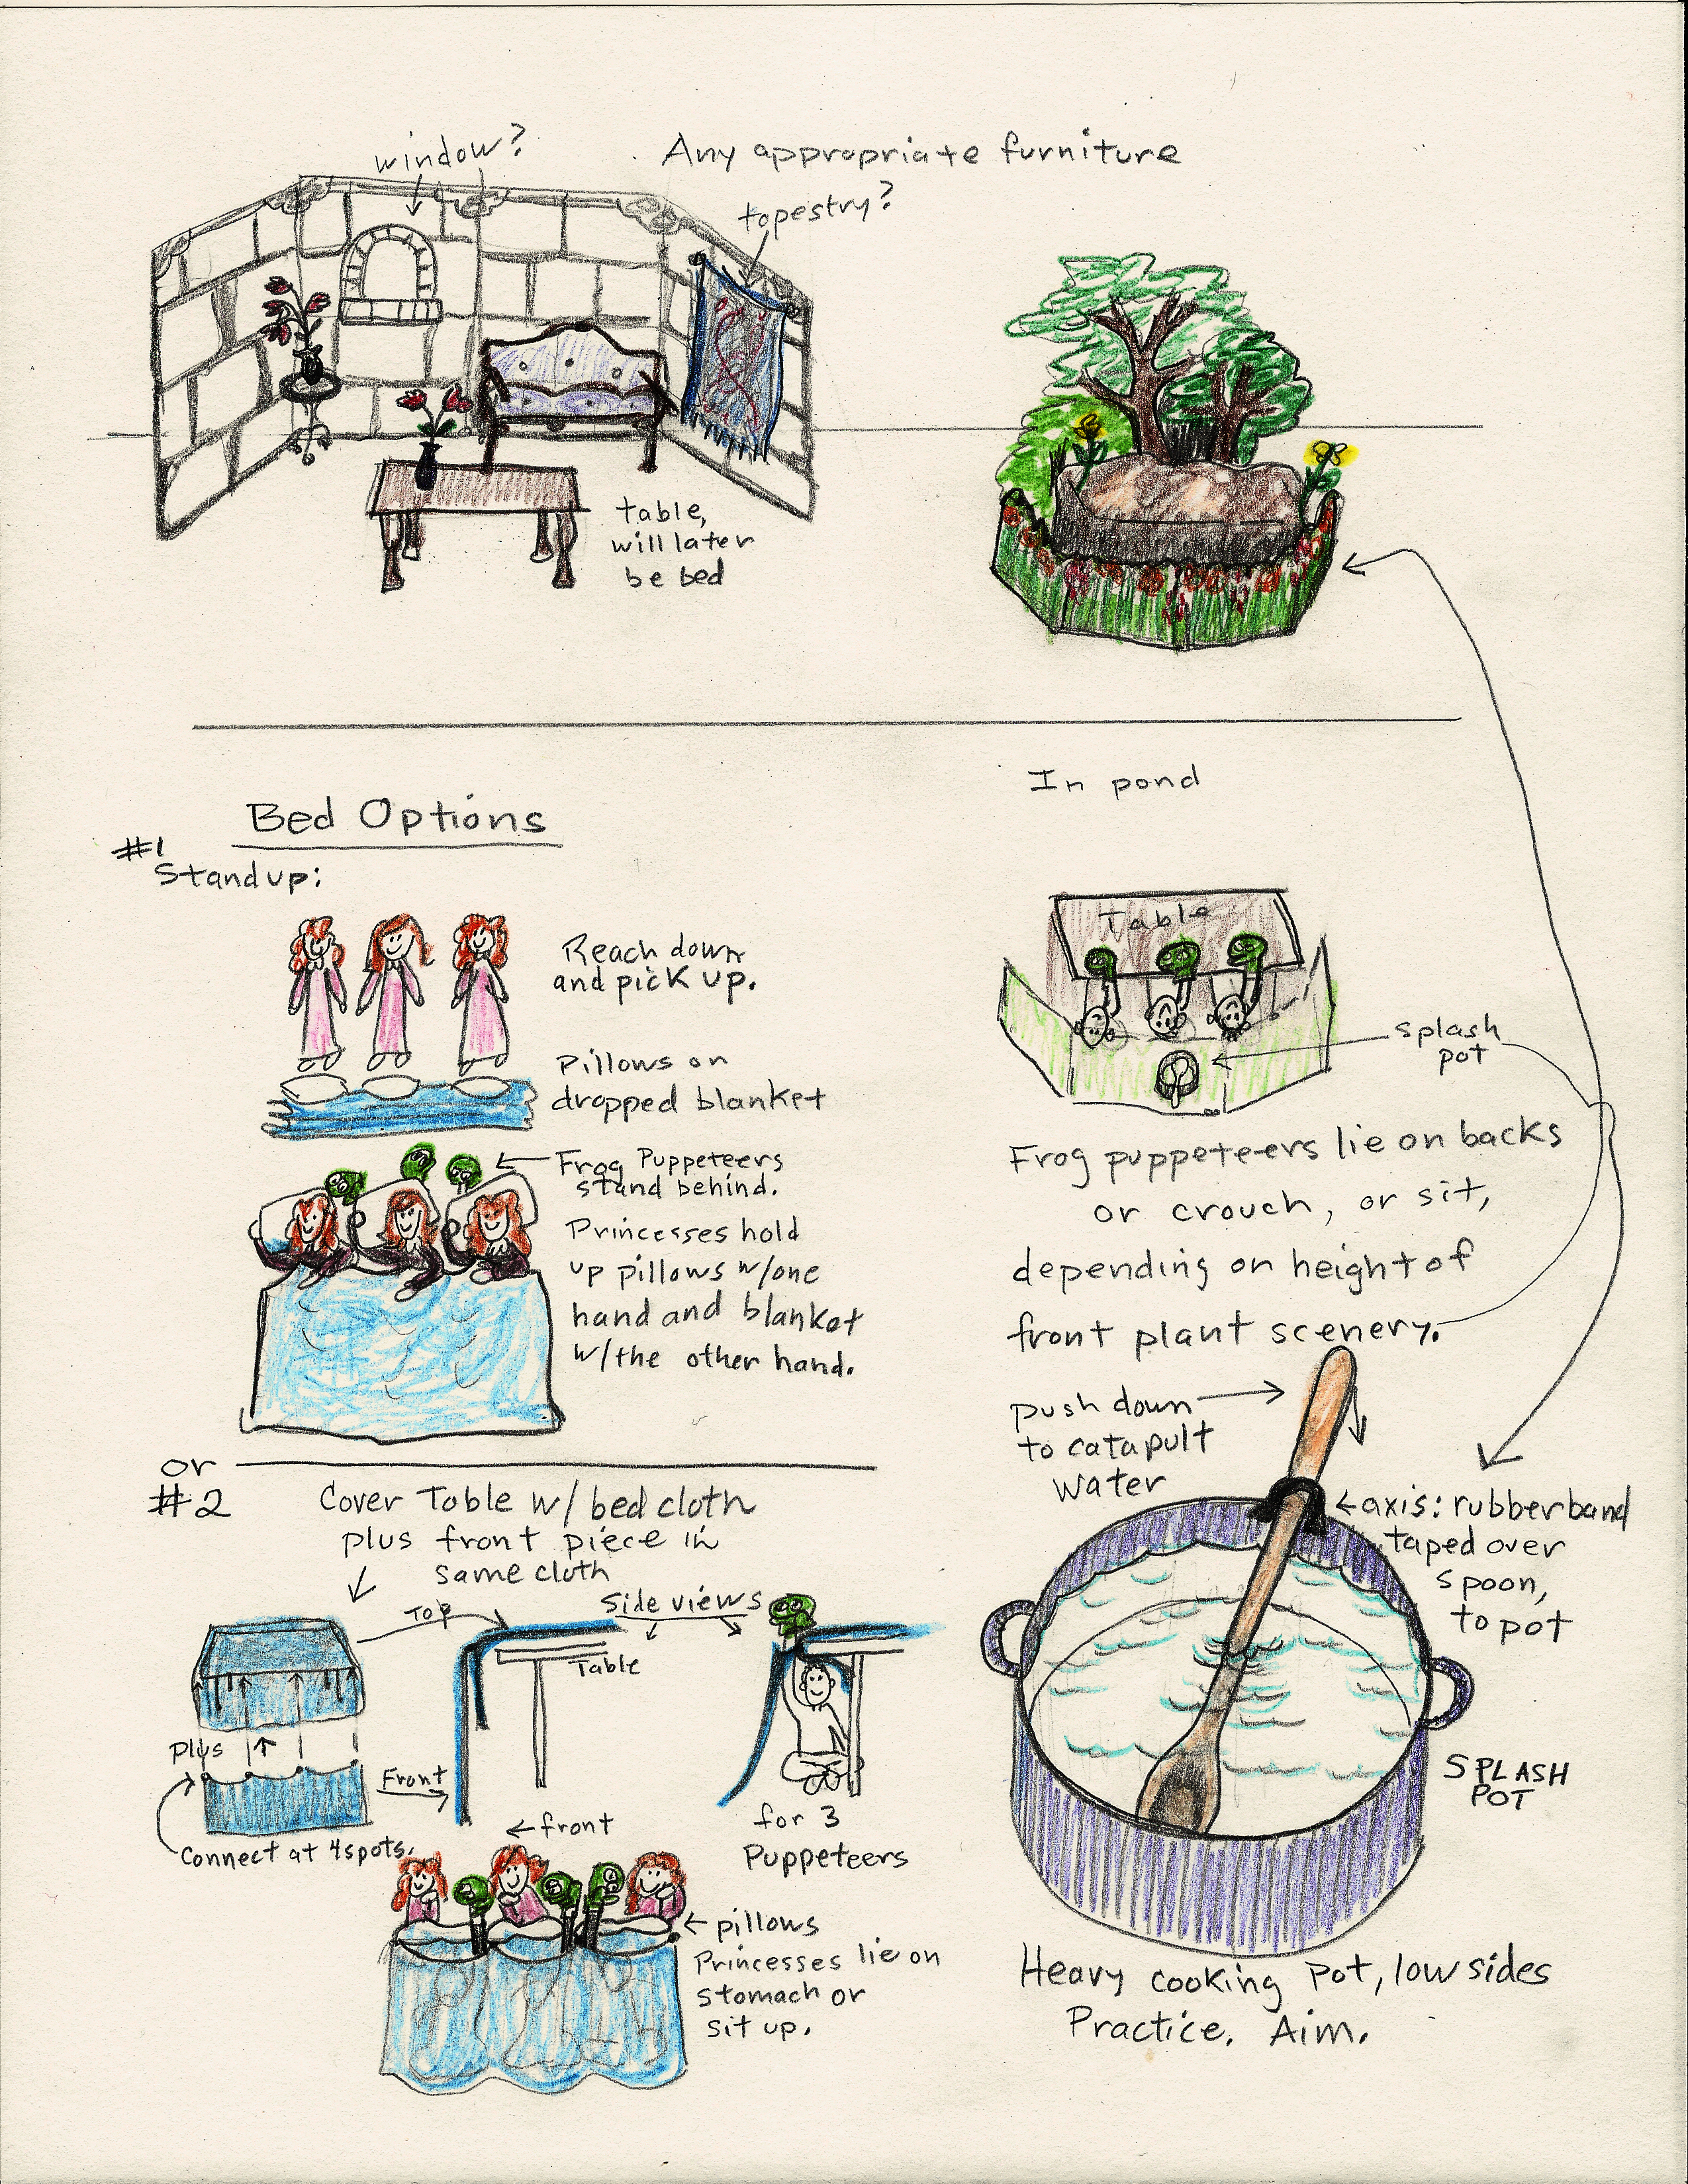 window?
Any appropriate furniture
tapestry?
table,
will later
be bed
Bed Options
#1
Stand up:
Reach down
and pick up.
Pillows on
dropped blanket
Frog Puppeteers
stand behind.
Princesses hold
up pillows w/one
hand and blanket
w/the other hand.
In pond
Table
splash
pot
Frog puppeteers lie on backs
or crouch, or sit,
depending on height of
front plant scenery.
push down
to catapult
water
axis: rubberband
taped over
spoon,
to pot
SPLASH
POT
Heavy cooking pot, low sides
Practice. Aim.
or
#2
Cover Table w/ bed cloth
plus front piece in
same cloth
Top
Side views
Table
Plus
Front
Connect at 4 spots.
front
for 3
Puppeteers
pillows
Princesses lie on
stomach or
sit up.